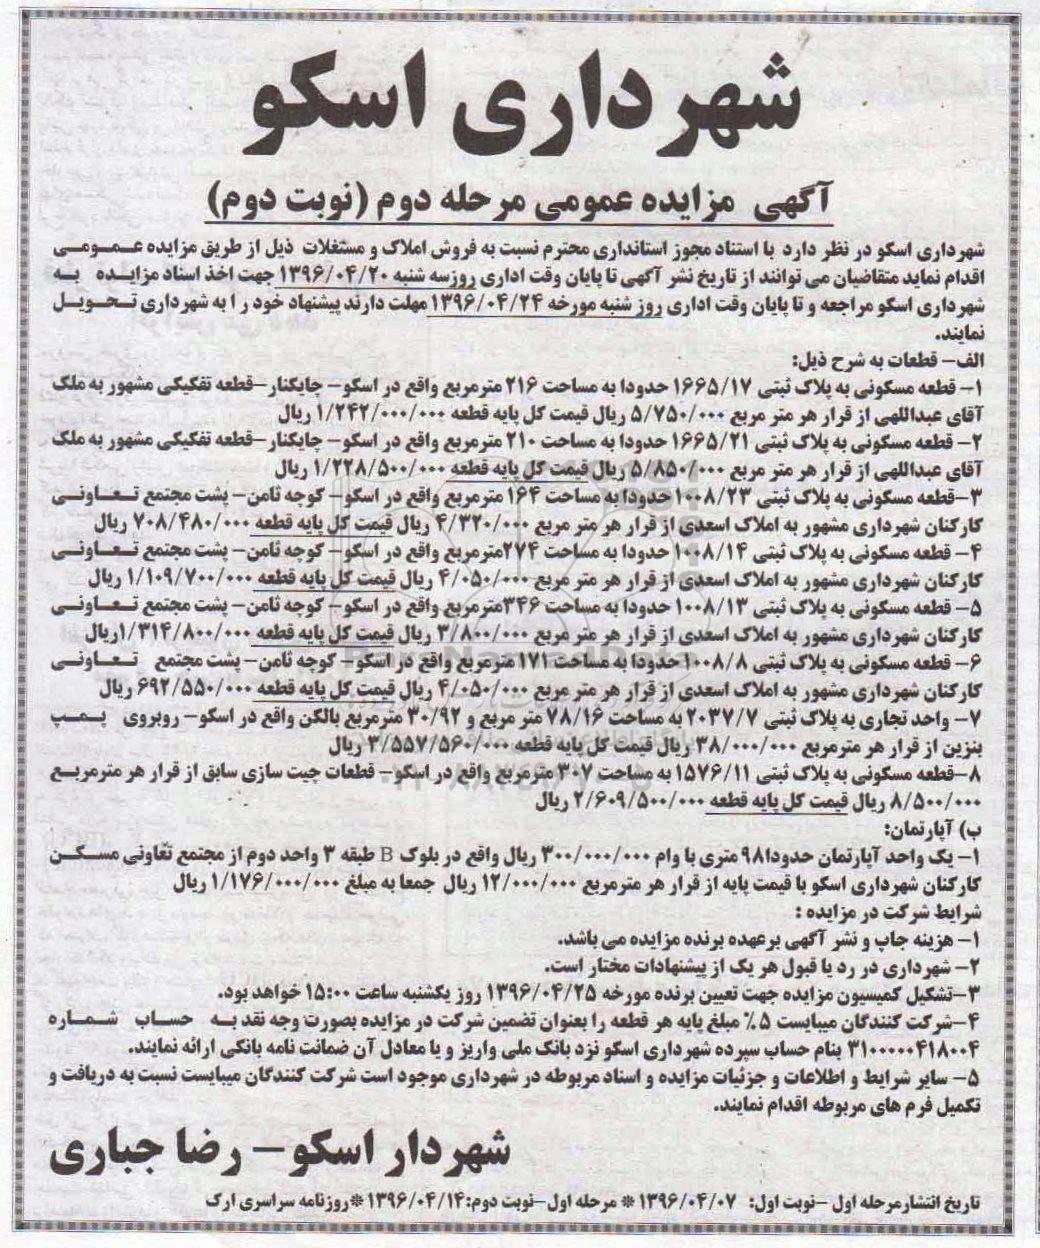 شهرداری اسکو
آگهی مزایده عمومی مرحله دوم (نوبت دوم)
شهرداری اسکو در نظر دارد با استناد مجوز استانداری محترم نسبت به فروش املاک و مستغلات ذیل از طریق مزایده عمومی
اقدام نماید متقاضیان می توانند از تاریخ نشر آگهی تا پایان وقت اداری روزسه شنبه ۱۳۹۶/۰۴/۲۰ جهت اخذ اسناد مزایده به
شهرداری اسکو مراجعه و تا پایان وقت اداری روز شنبه مورخه ۱۳۹۶/۰۴/۲۴ مهلت دارند پیشنهاد خود را به شهرداری تحویل
نمایند.
الف- قطعات به شرح ذیل:
۱- قطعه مسکونی به پلاک ثبتی ۱۶۶۵/۱۷ حدودا به مساحت ۲۱۶ مترمربع واقع در اسکو- چایکنار-قطعه تفکیکی مشهور به ملک
آقای عبداللهی از قرار هر متر مربع ۵/۷۵۰/۰۰۰ ریال قیمت کل پایه قطعه ۱/۲۴۲/۰۰۰/۰۰۰ ریال
۲- قطعه مسکونی به پلاک ثبتی ۱۶۶۵/۲۱ حدودا به مساحت ۲۱۰ مترمربع واقع در اسکو- چایکنار-قطعه تفکیکی مشهور به ملک
آقای عبداللهی از قرار هر متر مربع ۵/۸۵۰/۰۰۰ ریال قیمت کل پایه قطعه ۱/۲۲۸/۵۰۰/۰۰۰ ریال
۳-قطعه مسکونی به پلاک ثبتی ۱۰۰۸/۲۳ حدودا به مساحت ۱۶۴ مترمربع واقع در اسکو- کوچه ثامن- پشت مجتمع تعاونی
کارکنان شهرداری مشهور به املاک اسعدی از قرار هر متر مربع ۴/۳۲۰/۰۰۰ ریال قیمت کل پایه قطعه ۷۰۸/۴۸۰/۰۰۰ ریال
۴- قطعه مسکونی به پلاک ثبتی ۱۰۰۸/۱۴ حدودا به مساحت ۲۷۴مترمربع واقع در اسکو- کوچه ثامن- پشت مجتمع تعاونی
کارکنان شهرداری مشهور به املاک اسعدی از قرار هر متر مربع ۴/۰۵۰/۰۰۰ ریال قیمت کل پایه قطعه ۱/۱۰۹/۷۰۰/۰۰۰ ریال
۵- قطعه مسکونی به پلاک ثبتی ۱۰۰۸/۱۳ حدودا به مساحت ۳۴۶مترمربع واقع در اسکو- کوچه ثامن- پشت مجتمع تعاونی
کارکنان شهرداری مشهور به املاک اسعدی از قرار هر متر مربع ۳/۸۰۰/۰۰۰ ریال قیمت کل پایه قطعه ۱/۳۱۴/۸۰۰/۰۰۰ریال
۶- قطعه مسکونی به پلاک ثبتی ۱۰۰۸/۸ حدودا به مساحت ۱۷۱ مترمربع واقع در اسکو- کوچه ثامن- پشت مجتمع تعاونی
کارکنان شهرداری مشهور به املاک اسعدی از قرار هر متر مربع ۴/۰۵۰/۰۰۰ ریال قیمت کل پایه قطعه ۶۹۲/۵۵۰/۰۰۰ ریال
۷- واحد تجاری به پلاک ثبتی ۲۰۳۷/۷ به مساحت ۷۸/۱۶ متر مربع و ۳۰/۹۲ مترمربع بالکن واقع در اسکو- روبروی پمپ
بنزین از قرار هر مترمربع ۳۸/۰۰۰/۰۰۰ ریال قیمت کل پایه قطعه ۳/۵۵۷/۵۶۰/۰۰۰ ریال
۸-قطعه مسکونی به پلاک ثبتی ۱۵۷۶/۱۱ به مساحت ۳۰۷ مترمربع واقع در اسکو- قطعات چیت سازی سابق از قرار هر مترمربع
۸/۵۰۰/۰۰۰ ریال قیمت کل پایه قطعه ۲/۶۰۹/۵۰۰/۰۰۰ ریال
ب) آپارتمان:
۱- یک واحد آپارتمان حدودا۹۸ متری با وام ۳۰۰/۰۰۰/۰۰۰ ریال واقع در بلوک B طبقه ۳ واحد دوم از مجتمع تعاونی مسکن
کارکنان شهرداری اسکو با قیمت پایه از قرار هر مترمربع ۱۲/۰۰۰/۰۰۰ ریال جمعا به مبلغ ۱/۱۷۶/۰۰۰/۰۰۰ ریال
شرایط شرکت در مزایده :
۱- هزینه چاپ و نشر آگهی برعهده برنده مزایده می باشد.
۲- شهرداری در رد یا قبول هر یک از پیشنهادات مختار است.
۳-تشکیل کمیسیون مزایده جهت تعیین برنده مورخه ۱۳۹۶/۰۴/۲۵ روز یکشنبه ساعت ۱۵:۰۰ خواهد بود.
۴-شرکت کنندگان میبایست ۵٪ مبلغ پایه هر قطعه را بعنوان تضمین شرکت در مزایده بصورت وجه نقد به حساب شماره
۳۱۰۰۰۰۰۴۱۸۰۰۴ بنام حساب سپرده شهرداری اسکو نزد بانک ملی واریز و یا معادل آن ضمانت نامه بانکی ارائه نمایند.
۵- سایر شرایط و اطلاعات و جزئیات مزایده و اسناد مربوطه در شهرداری موجود است شرکت کنندگان میبایست نسبت به دریافت و
تکمیل فرم های مربوطه اقدام نمایند.
شهردار اسکو- رضا جباری
تاریخ انتشارمرحله اول -نوبت اول: ۱۳۹۶/۰۴/۰۷ * مرحله اول-نوبت دوم:۱۳۹۶/۰۴/۱۴ *روزنامه سراسری ارک
ParsNamadData